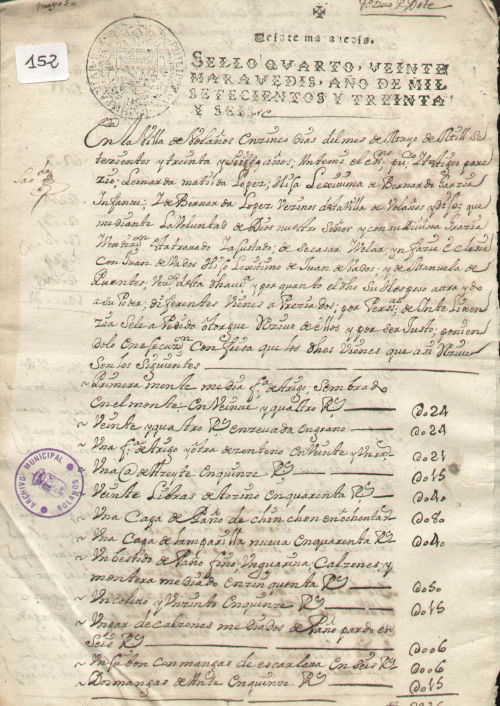 mayo 5
Rezivo de Dote
152
Veinte maravedis.
SELLO QVARTO, VEINTE
MARAVEDIS, AÑO DE MIL
SETECIENTOS Y TREINTA
Y SEIS.
En la Villa de Volaños en zinco dias del mes de Mayo de Mill Se
tezientos y treinta y seis años; Antemi el Essno pu.co y testigos pare
zio, Leonarda matilda Lopez, Hija Lexitima de Bernardo Garzia
Infante, y de Bernarda Lopez Vezinos desta Villa de Volaños y Dijo, que
mediante La Voluntad de Dios nuestro Señor y con su Divina Grazia
esta tratado de Casar y Velar, yn fazie
Con Juan de Hijo Lexitimo de Juan de y de Manuela de
Fuentes, Vezos desta dha Vª y por quanto el dho Su esposo a
a su Poder, diferentes Vienes apreziados, por
zia Sele a Pedido otorgue Rezivo de ellos y por ser Justo, ponien
dolo en efecto Confiesa que los dhos Vienes que asi Rezive
Son los Siguientes
~ Primera mente media f.ª de trigo, Sembrado
en el monte en Veinte y quatro Rs 0024
~ Veinte y quatro Rs en zevada en grano 0024
~ Una f.ª de trigo y otra de zenteno en Veinte y Un Rs 0021
~ Una @ de Azeyte en quinze Rs 0015
~ Veinte Libras de tozino en quarenta Rs 0040
~ Una Capa de Paño de chinchon en ochenta Rs 0080
~ Una Capa de anparilla nueva en quarenta Rs 0040
~ Un bestido de Paño fino, Unguarina, Calzones, y
montera mediado en zinquenta Rs 0050
~ Un coleto y Un zinto en quinze Rs 0015
~ Un par de calzones mediados de Paño pardo en
Seis Rs 0006
~ Un Jubon con mangas de escarlata en Seis Rs 0006
~ Dos mangas de Ante en quinze Rs 0015
ARCHIVO MUNICIPAL
BOLAÑOS